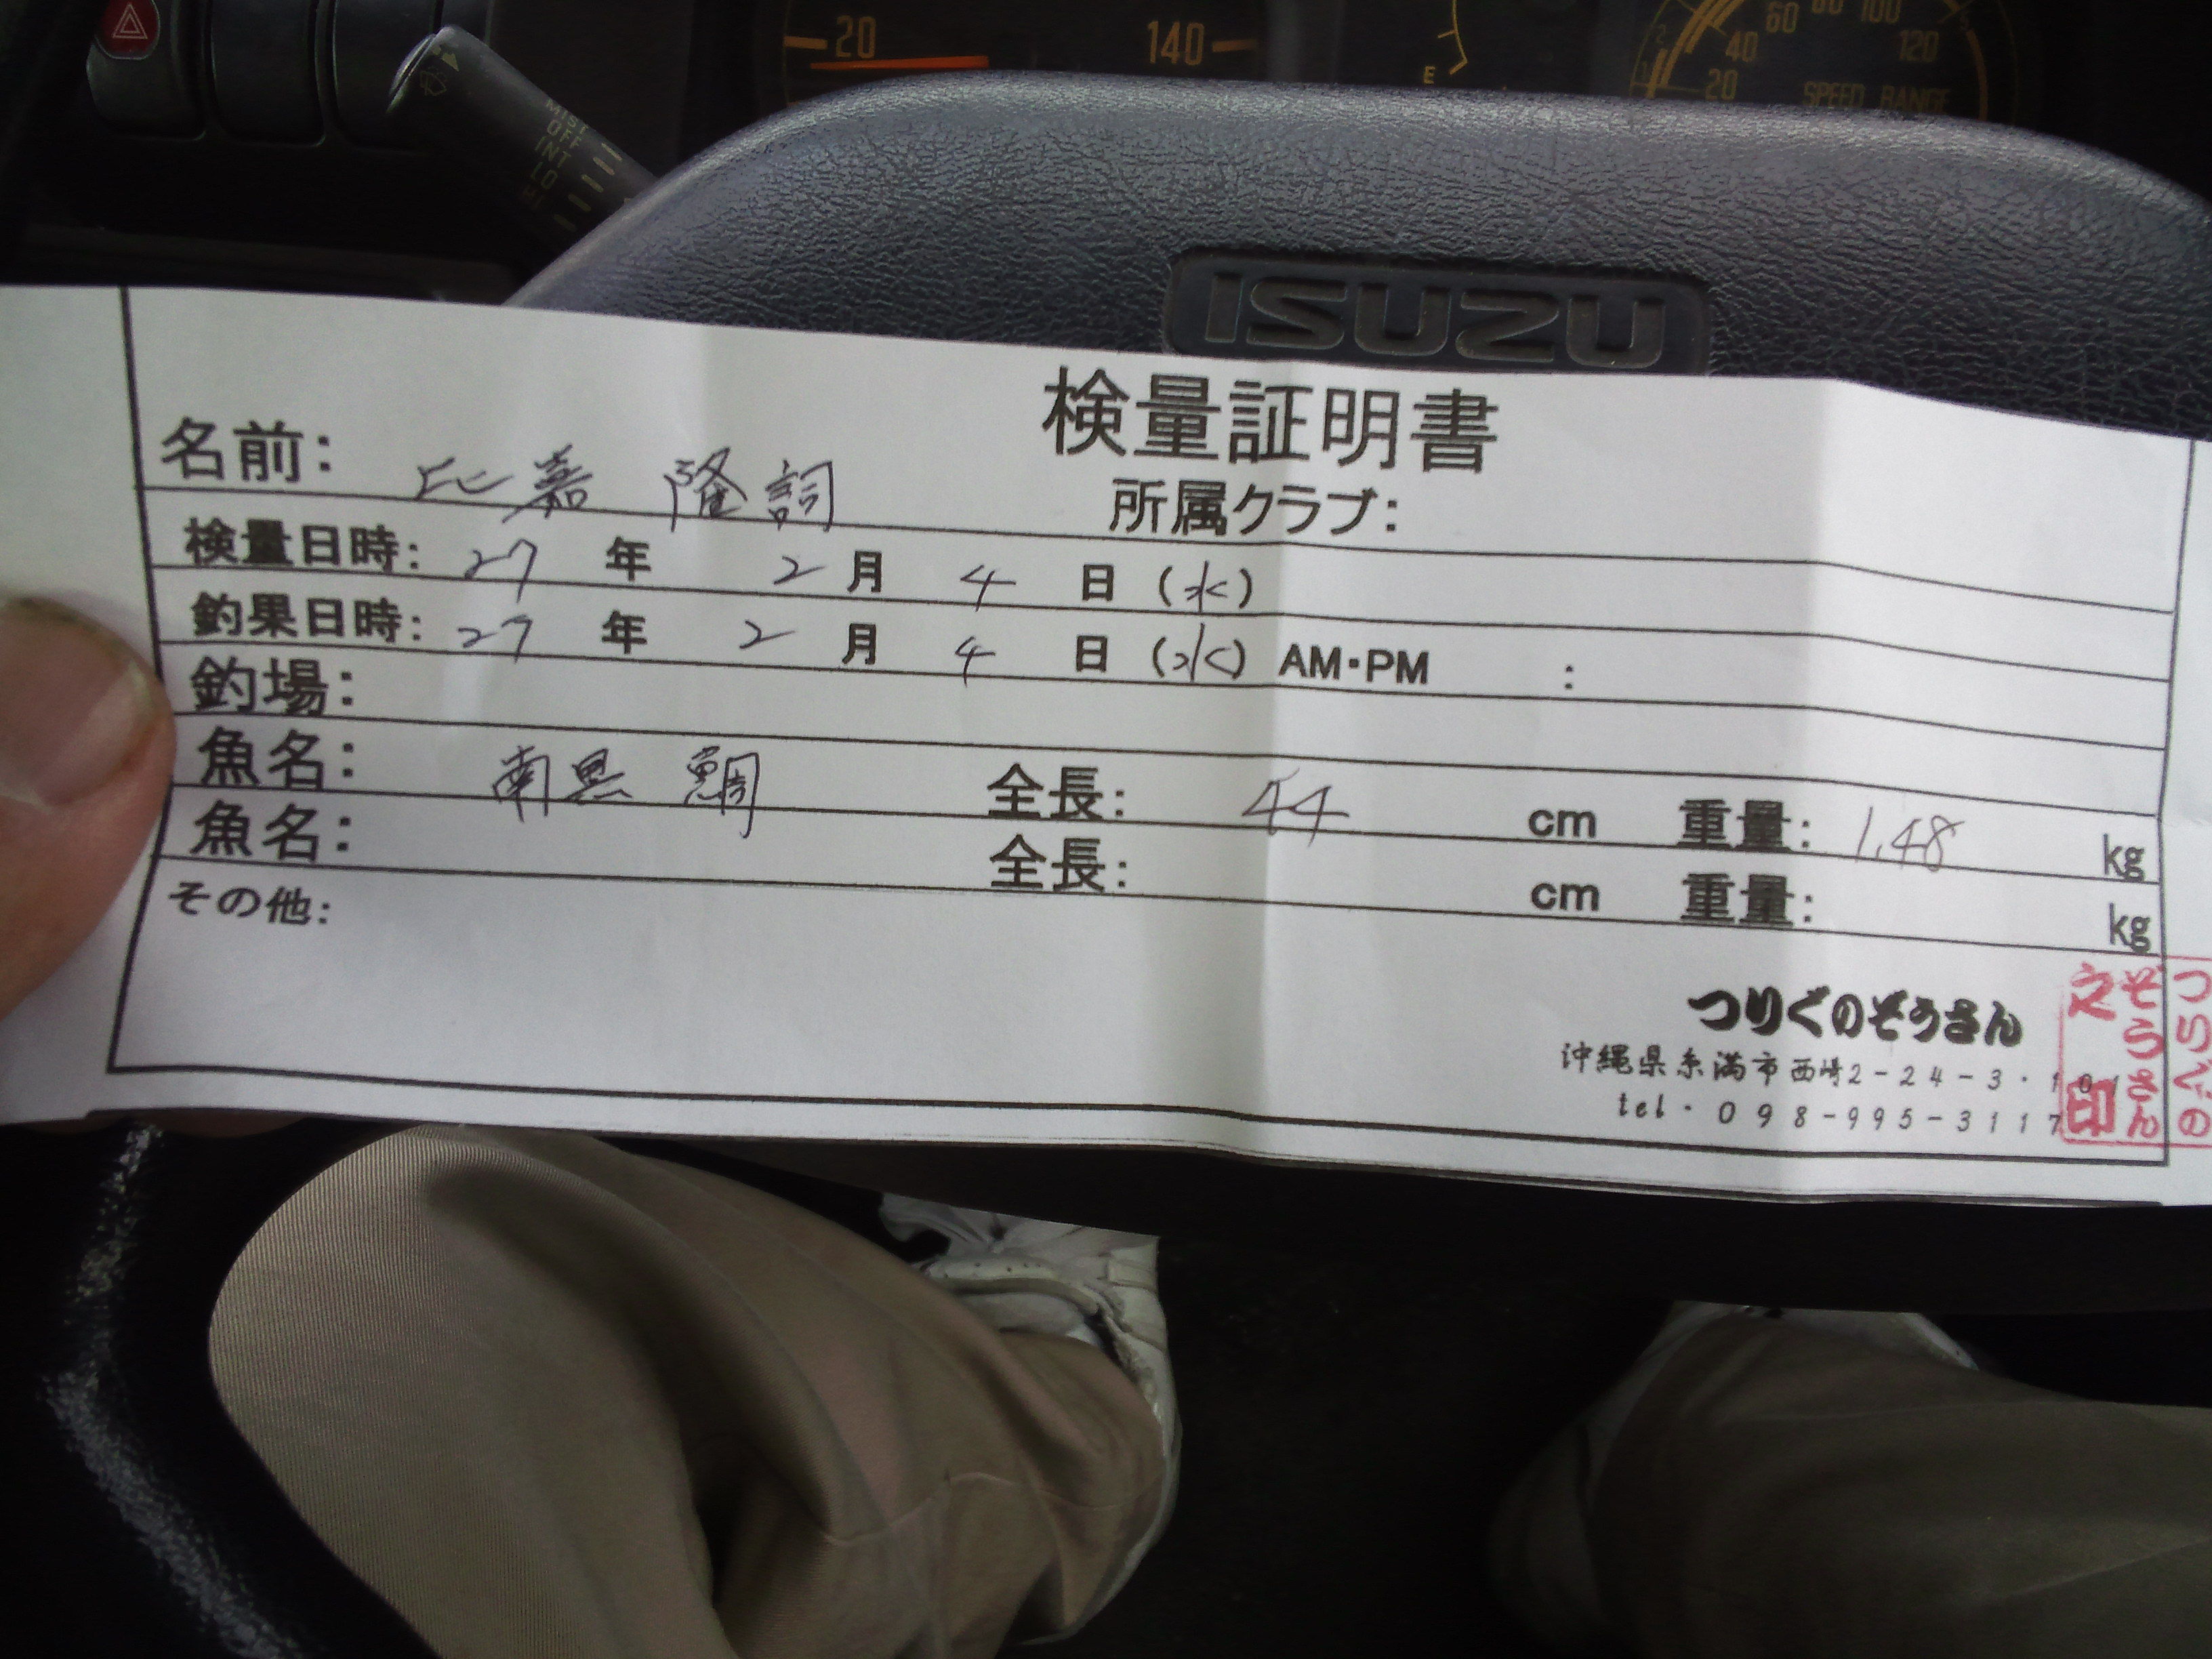 20 140
E
20 40 60 80 100 120
SPEED RANGE
MIST
OFF
INT
LO
HI
ISUZU
検量証明書
名前: 比嘉 隆詞 所属クラブ:
検量日時: 27 年 2 月 4 日 (水)
釣果日時: 27 年 2 月 4 日 (水) AM・PM :
釣場:
魚名: 南黒鯛 全長: 44 cm 重量: 1.48 kg
魚名: 全長: cm 重量: kg
その他:
つりぐのぞうさん
沖縄県糸満市西崎2-24-3・101
tel・098-995-3117
つりぐの
ぞうさん
之印